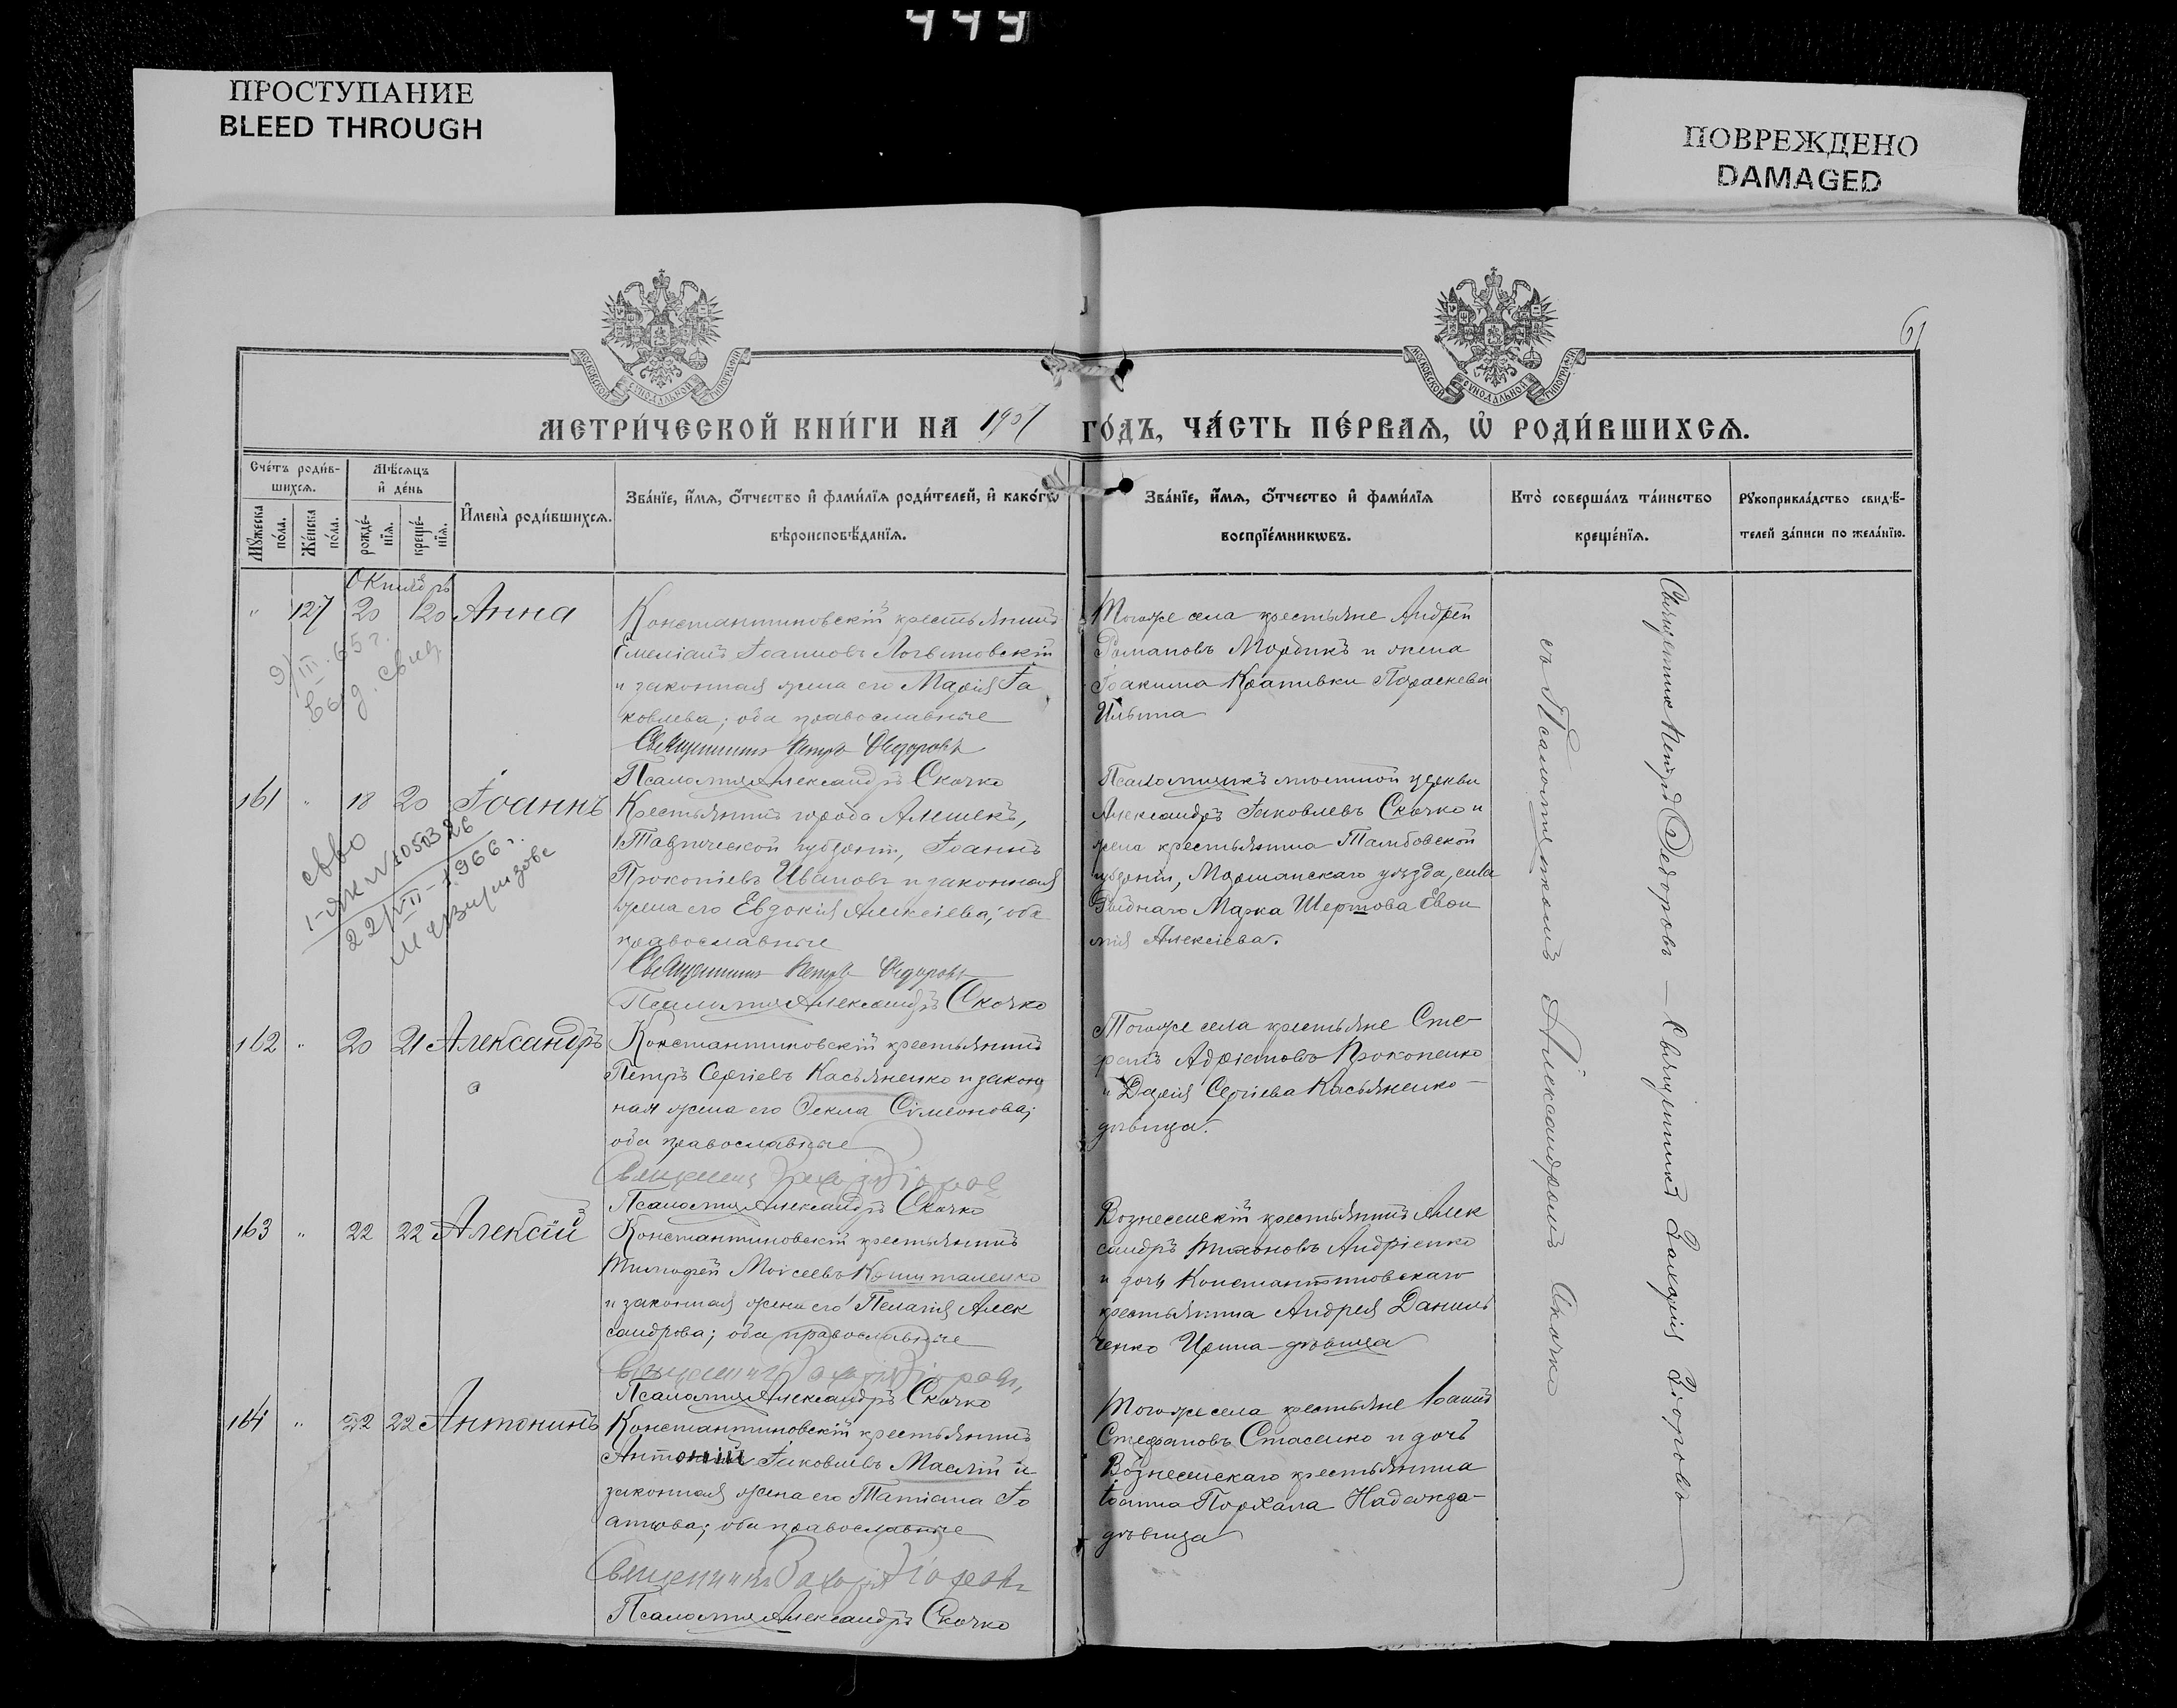 449
ПРОСТУПАНИЕ
BLEED THROUGH
ПОВРЕЖДЕНО
DAMAGED
61
МОСКОВСКОЙ СУНОДАЛЬНОЙ ТИПОГРАФІИ
МОСКОВСКОЙ СУНОДАЛЬНОЙ ТИПОГРАФІИ
МЕТРИ́ЧЕСКОЙ КНИ́ГИ НА 1907 ГО́ДЪ, ЧА́СТЬ ПЕ́РВАЯ, Ѡ РОДИ́ВШИХСЯ.
Сче́тъ роди́в-
шихся.
Мѣсяцъ
и де́нь
Мꙋжеска по́ла.
Же́нска по́ла.
рожде́-
нїя.
креще́-
нїя.
Имена̀ роди́вшихся.
Зва́нїе, и́мя, о́тчество и фами́лїя роди́телей, и како́гѡ
вѣроисповѣ́данїя.
Зва́нїе, и́мя, о́тчество и фами́лїя
воспрїе́мникѡвъ.
Кто̀ соверша́лъ та́инство
креще́нїя.
Рꙋкоприкла́дство свидѣ́-
телей за́писи по жела́нїю.
Октябрь
" 127 20 20 Анна
9/III.65 г.
выд. свид.
Константиновскій крестьянинъ
Емеліанъ Іоанновъ Логвиновскій
и законная жена его Марія Іа
ковлева; оба православные
Священникъ Петръ Ѳедоровъ
Псаломщ Александръ Скочко
Того же села крестьяне Андрей
Романовъ Мордикъ и жена
Іоакима Крапивки Параскева
Ильина
161 " 18 20 Іоаннъ
св-во
I-ЯК № 1050326
22/VII-1966 г.
Крестьянинъ города Алешекъ,
Таврической губерніи, Іоаннъ
Прокопіевъ Ивановъ и законная
жена его Евдокія Алексіева; оба
православные
Священникъ Петръ Ѳедоровъ
Псаломщ Александръ Скочко
Псаломщикъ мѣстной церкви
Александръ Іаковлевъ Скочко и
жена крестьянина Тамбовской
губерніи, Моршанскаго уѣзда, села
Марка Шертова Евѳи
мія Алексіева.
162 " 20 21 Александръ
Константиновскій крестьянинъ
Петръ Сергіевъ Касьяненко и закон
ная жена его Ѳекла Сімеонова;
оба православные
Священникъ Захарія Діоровъ
Псаломщ Александръ Скочко
Того же села крестьяне Сте
фанъ Адріановъ Прокопенко
и Дарія Сергіева Касьяненко —
дѣвица.
163 " 22 22 Алексій
Константиновскій крестьянинъ
Тимофей Моісеевъ
и законная жена его Пелагія Алек
сандрова; оба православные
Священникъ Захарія Діоровъ
Псаломщ Александръ Скочко
Вознесенскій крестьянинъ Алек
сандръ Тихоновъ Андріенко
и дочь Константиновскаго
крестьянина Андрея Даниль
ченко Ирина - дѣвица
164 " 22 22 Антонинъ
Константиновскій крестьянинъ
Антоній Іаковлевъ Маслій и
законная жена его Татіана Іо
аннова; оба православные
Священникъ Захарія Діоровъ
Псаломщ Александръ Скочко
Того же села крестьяне Іоаннъ
Стефановъ Стасенко и дочь
Вознесенскаго крестьянина
Іоанна Порхала Надежда -
дѣвица
Священникъ Петръ Ѳедоровъ — Священникъ Захарія Діоровъ
съ Псаломщикомъ Александромъ Скочко